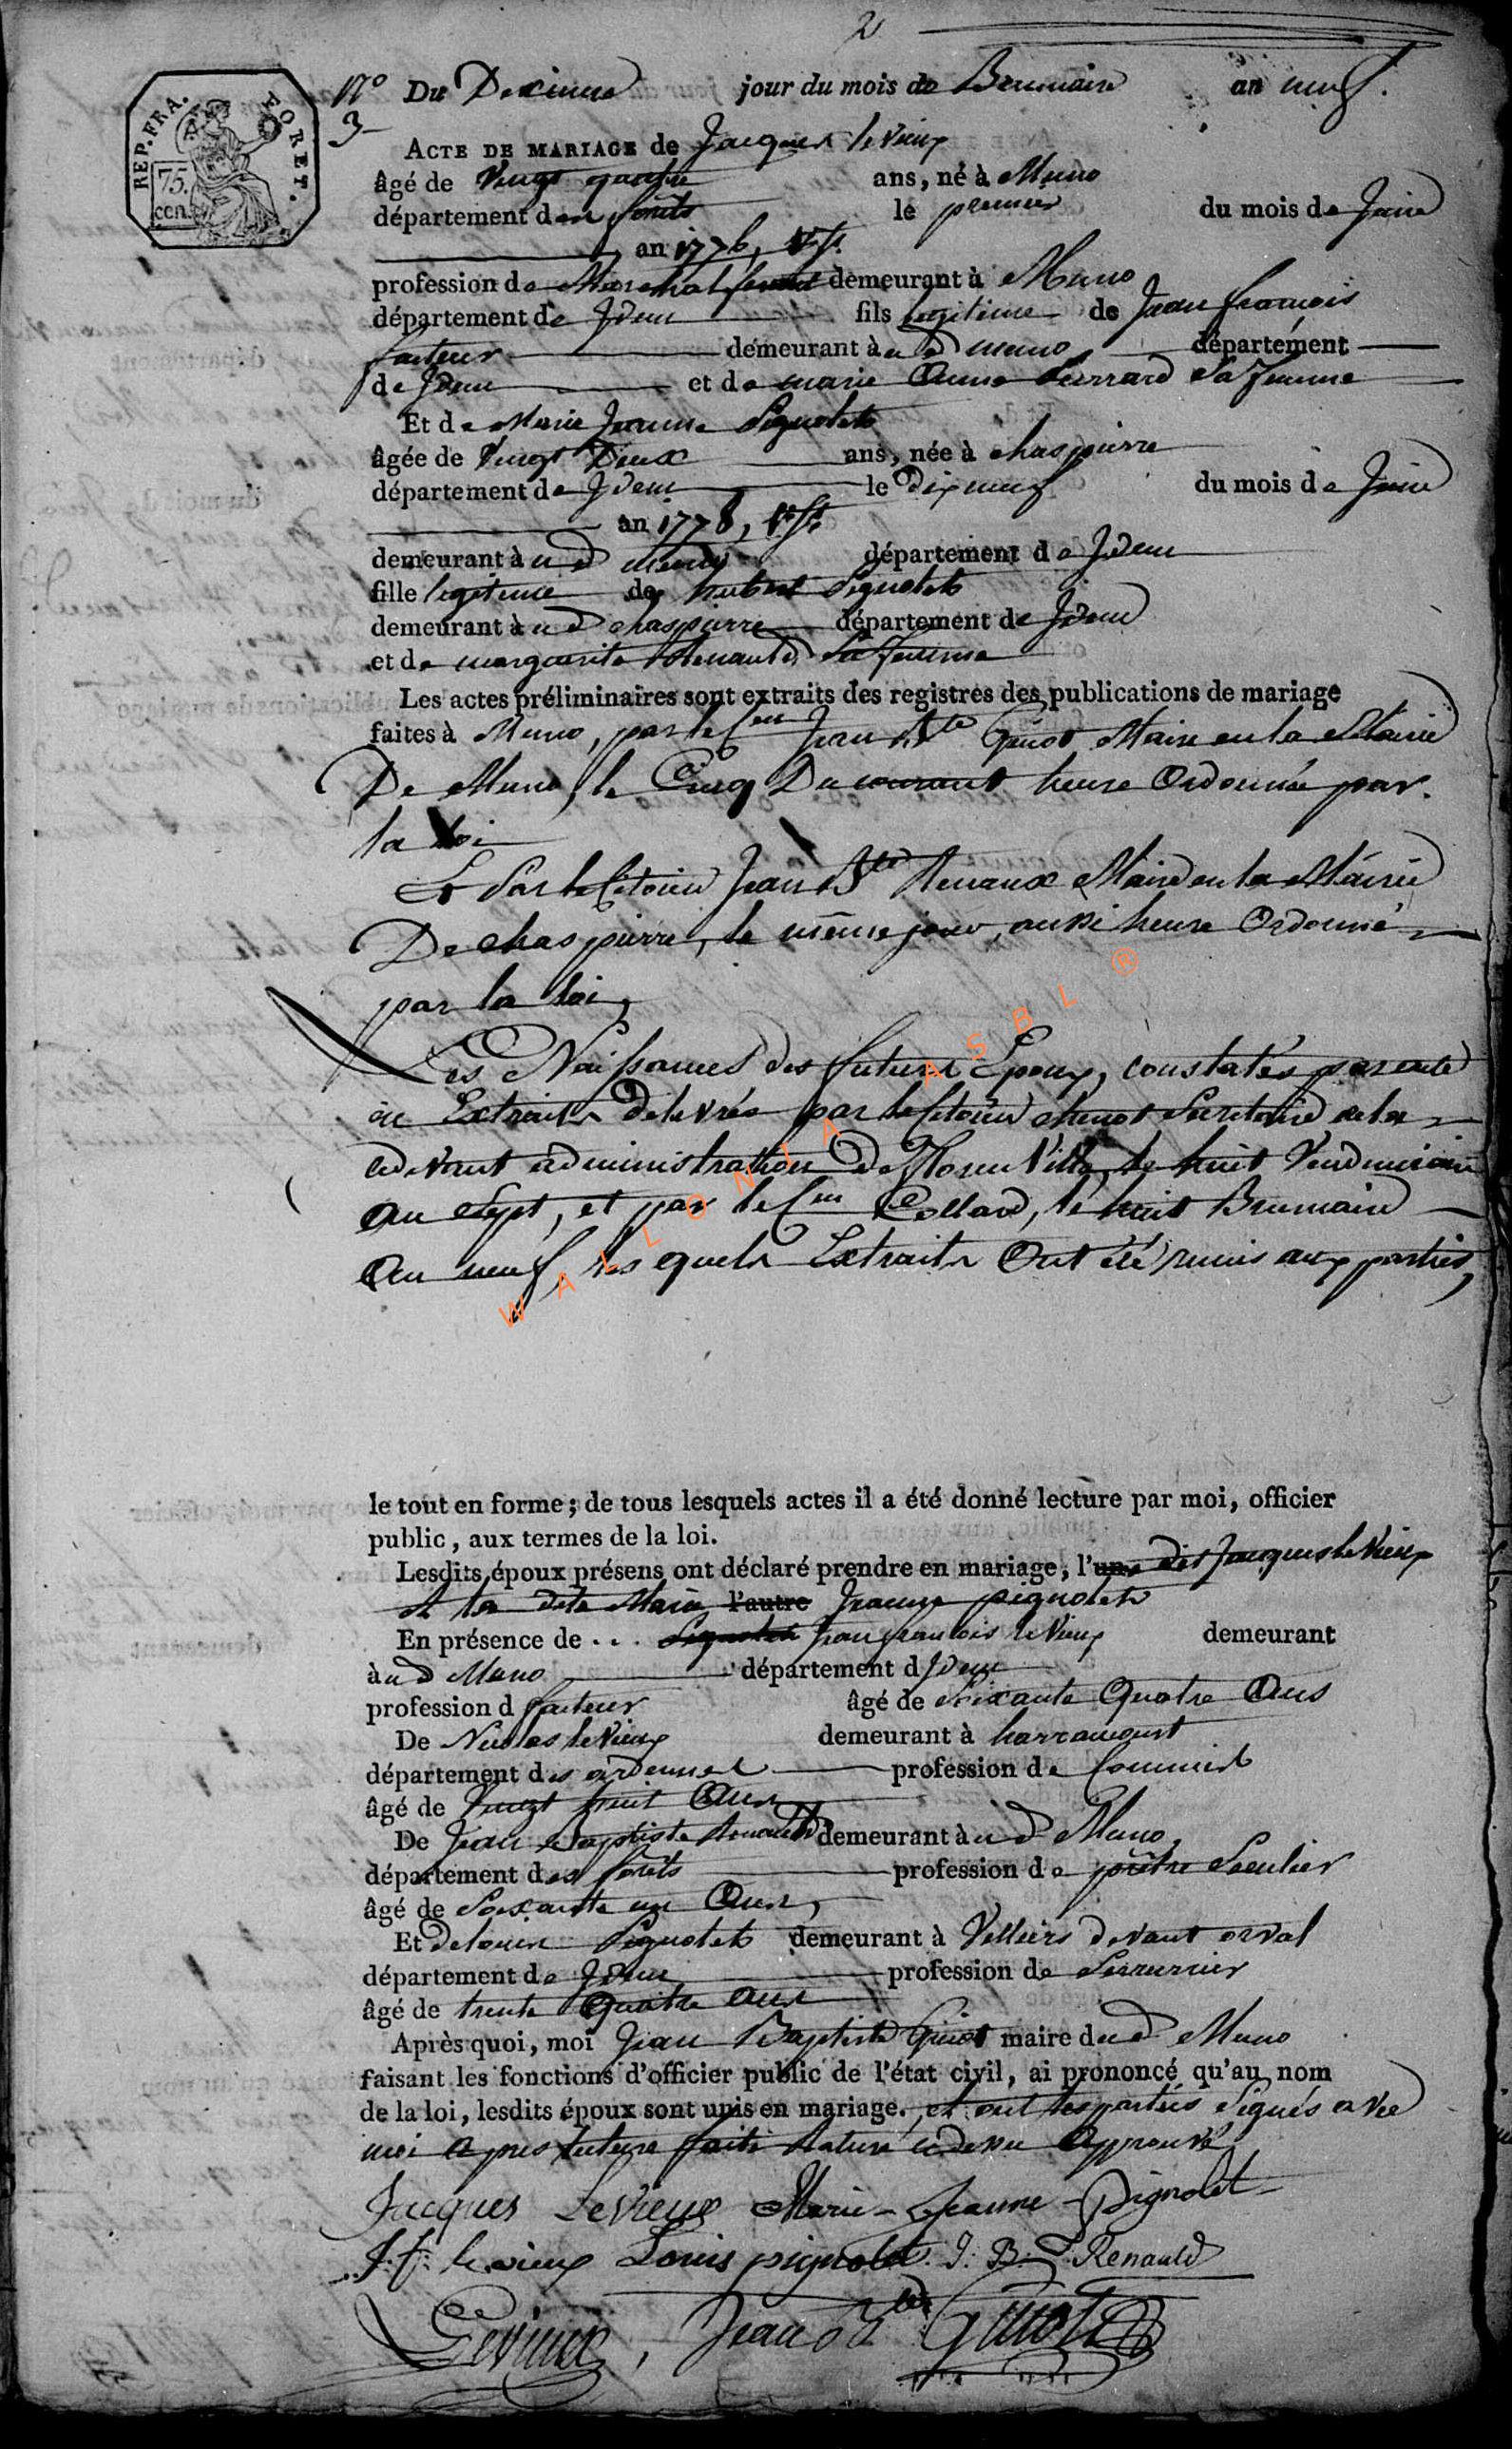 2
REP. FRA. FORET.
75. cen.
N° Du Dixieme jour du mois de Brumaire an neuf.
3
ACTE DE MARIAGE de Jacques le vieux
âgé de Vingt quatre ans, né à Muno
département des forêts le premier du mois de Juin
an 1776, V. St.
profession de Marechal ferrant demeurant à Muno
département de Jdem fils legitime de Jean francois
facteur demeurant à ud muno département
de Jdem et de marie Anne Serrard Sa femme
Et de Marie Jeanne Pignolet
âgée de Vingt Deux ans, née à chaspierre
département de Jdem le dix neuf du mois de Juin
an 1778, V. St.
demeurant à ud muno département de Jdem
fille legitime de hubert Pignolet
demeurant à ud chaspierre département de Jdem
et de marguerite Renauld Sa femme
Les actes préliminaires sont extraits des registres des publications de mariage
faites à Muno, par le Cen Jean Bte Guiot Maire en la Mairie
De Muno, le Cinq Du courant heure Ordonnée par
la Loi
Et Par le Citoien Jean Bte Renaux Maire en la Mairie
De chaspierre, le même jour, aussi heure Ordonné
par la Loi,
Les Naissances des futurs Epoux, constatés par acte
ou Extraits Delivrés par le Citoien chenot Secretaire de la
cidevant administration De Florenville, le huit Vendemiaire
an Sept, et par le Cen Collard, le huit Brumaire
an neuf, les quels Extraits Ont été remis aux parties,
WALLONIA ASBL ®
le tout en forme; de tous lesquels actes il a été donné lecture par moi, officier
public, aux termes de la loi.
Lesdits époux présens ont déclaré prendre en mariage, l'un dit Jacques le Vieux
et la dite Marie l'autre Jeanne pignolet
En présence de . . . Pignolet Jean francois le Vieux demeurant
à ud Muno département d Jdem
profession d facteur âgé de Soixante Quatre Ans
De Nicolas le Vieux demeurant à harraucourt
département des ardennes profession de Commis
âgé de Vingt huit Ans
De Jean Baptiste Renauld demeurant à ud Muno,
département des forêts profession de prêtre Seculier
âgé de Soixante un Ans,
Et de Louis Pignolet demeurant à Velliers devant orval
département de Jdem profession de Serrurier
âgé de trente Quatre ans
Après quoi, moi Jean Baptiste Guiot maire dud Muno
faisant les fonctions d'officier public de l'état civil, ai prononcé qu'au nom
de la loi, lesdits époux sont unis en mariage. et ont les parties Signés avec
moi apres lecture faite Rature cidessu Approuvé
Jacques Levieux Marie-Jeanne-Pignolet
J: f: le vieux Louis pignolet. J: B: Renauld
Levieux, Jean Bte Guiot